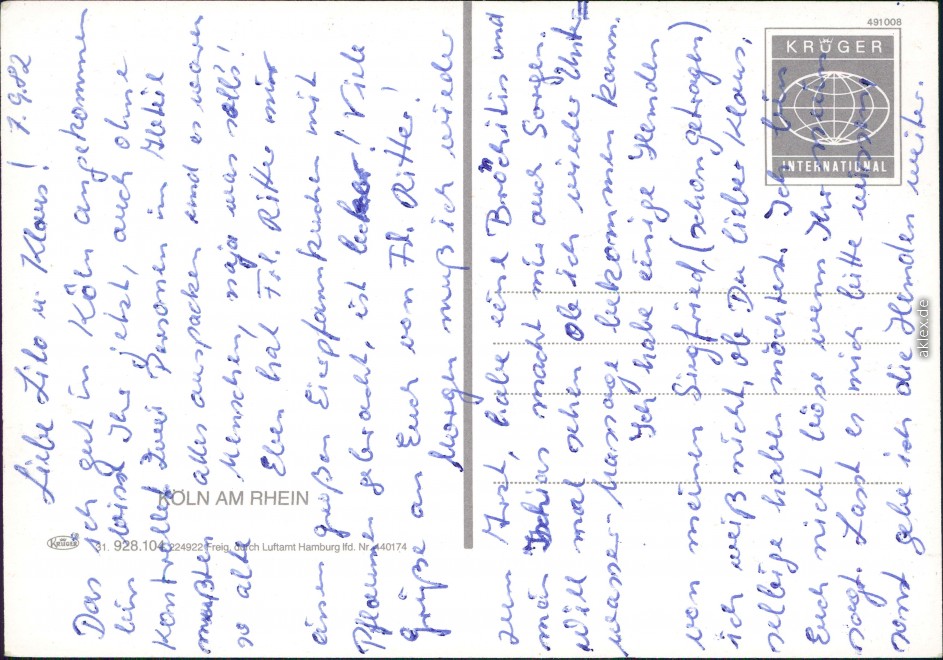 7.9.82
Liebe Lilo u. Klaus!
Das ich gut in Köln angekommen
bin wisst Ihr jetzt, auch ohne
Kontrolle. Zwei Personen im Abteil
mußten alles auspacken und es waren
so alte Menschen, naja was solls!
Eben hat Frl. Ritter mir
einen großen Eierpfannkuchen mit
Pflaumen gebracht, ist lecker! Viele
Grüße an Euch von Frl. Ritter!
Morgen muß ich wieder
zum Arzt, habe eine Bronchitis und
mein Ischias macht mir auch Sorgen.
Will mal sehen ob ich wieder Unter=
wasser-Massage bekommen kann.
Ich habe einige Hemden
von meinem Siegfried, (schon getragen)
ich weiß nicht, ob Du lieber Klaus,
selbige haben möchtest. Ich bin
Euch nicht böse wenn Ihr nein
sagt. Lasst es mich bitte wissen
sonst gebe ich die Hemden weiter.
KÖLN AM RHEIN
KRÜGER
31. 928.104 224922 Freig. durch Luftamt Hamburg lfd. Nr. 440174
491008
KRÜGER
INTERNATIONAL
aklex.de